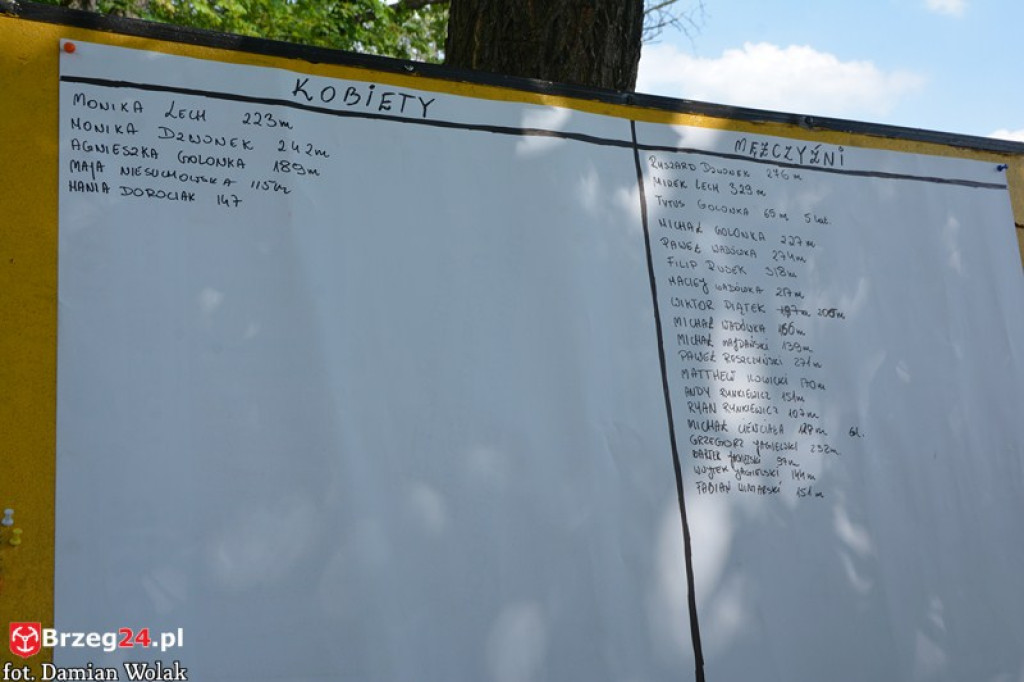 KOBIETY
MONIKA LECH 223m
MONIKA DZWONEK 242m
AGNIESZKA GOLONKA 189m
MAJA NIESUCHOWSKA 115m
HANIA DOROCIAK 147
MĘŻCZYŹNI
RYSZARD DZWONEK 276m
MIREK LECH 329m
TYTUS GOLONKA 65m 5 lat
MICHAŁ GOLONKA 227m
PAWEŁ WADÓWKA 274m
FILIP 318m
MACIEJ WADÓWKA 217m
WIKTOR PIĄTEK 197m 205m
MICHAŁ WADÓWKA 160m
MICHAŁ MAJDAŃSKI 139m
PAWEŁ ROSZCZYŃSKI 271m
MATTHEW ILOWICKI 170m
ANDY RYNKIEWICZ 151m
RYAN RYNKIEWICZ 107m
MICHAŁ CIEŃCIAŁA 6l.
GRZEGORZ JAGIELSKI 232m
BARTEK JAGIELSKI 97m
WOJTEK JAGIELSKI 144m
FABIAN WINIARSKI 151m
Brzeg24.pl
fot. Damian Wolak